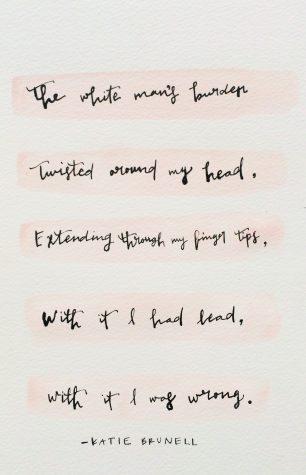 The white man's burden
Twisted around my head,
Extending through my finger tips,
With it I had lead,
with it I was wrong.
-KATIE BRUNELL